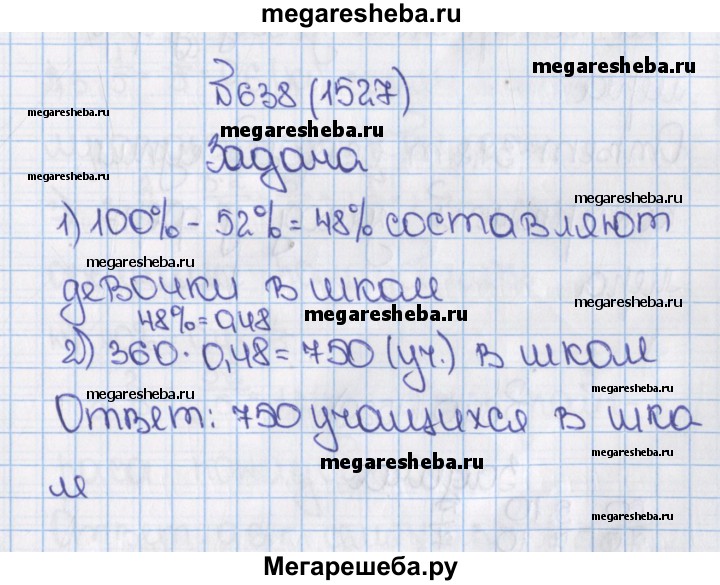 megaresheba.ru
megaresheba.ru
№638 (1527)
megaresheba.ru
megaresheba.ru
Задача
megaresheba.ru
megaresheba.ru
1) 100% - 52% = 48% составляют
megaresheba.ru
девочки в школе
megaresheba.ru
48% = 0,48
megaresheba.ru
2) 360 · 0,48 = 750 (уч.) в школе
megaresheba.ru
megaresheba.ru
Ответ: 750 учащихся в шко
megaresheba.ru
megaresheba.ru
ле
megaresheba.ru
Мегарешеба.ру